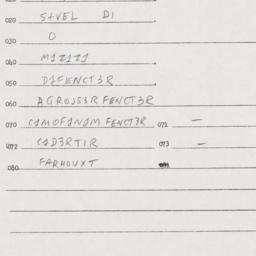 020 S+VEL DI
030 O
040 MIZIZI
050 DIFENCT3R
060 AGROJS3R FENCT3R
070 CIMOFINIM FENCT3R 071 —
072 CID3RTIR 073 —
080 FARHOUXT